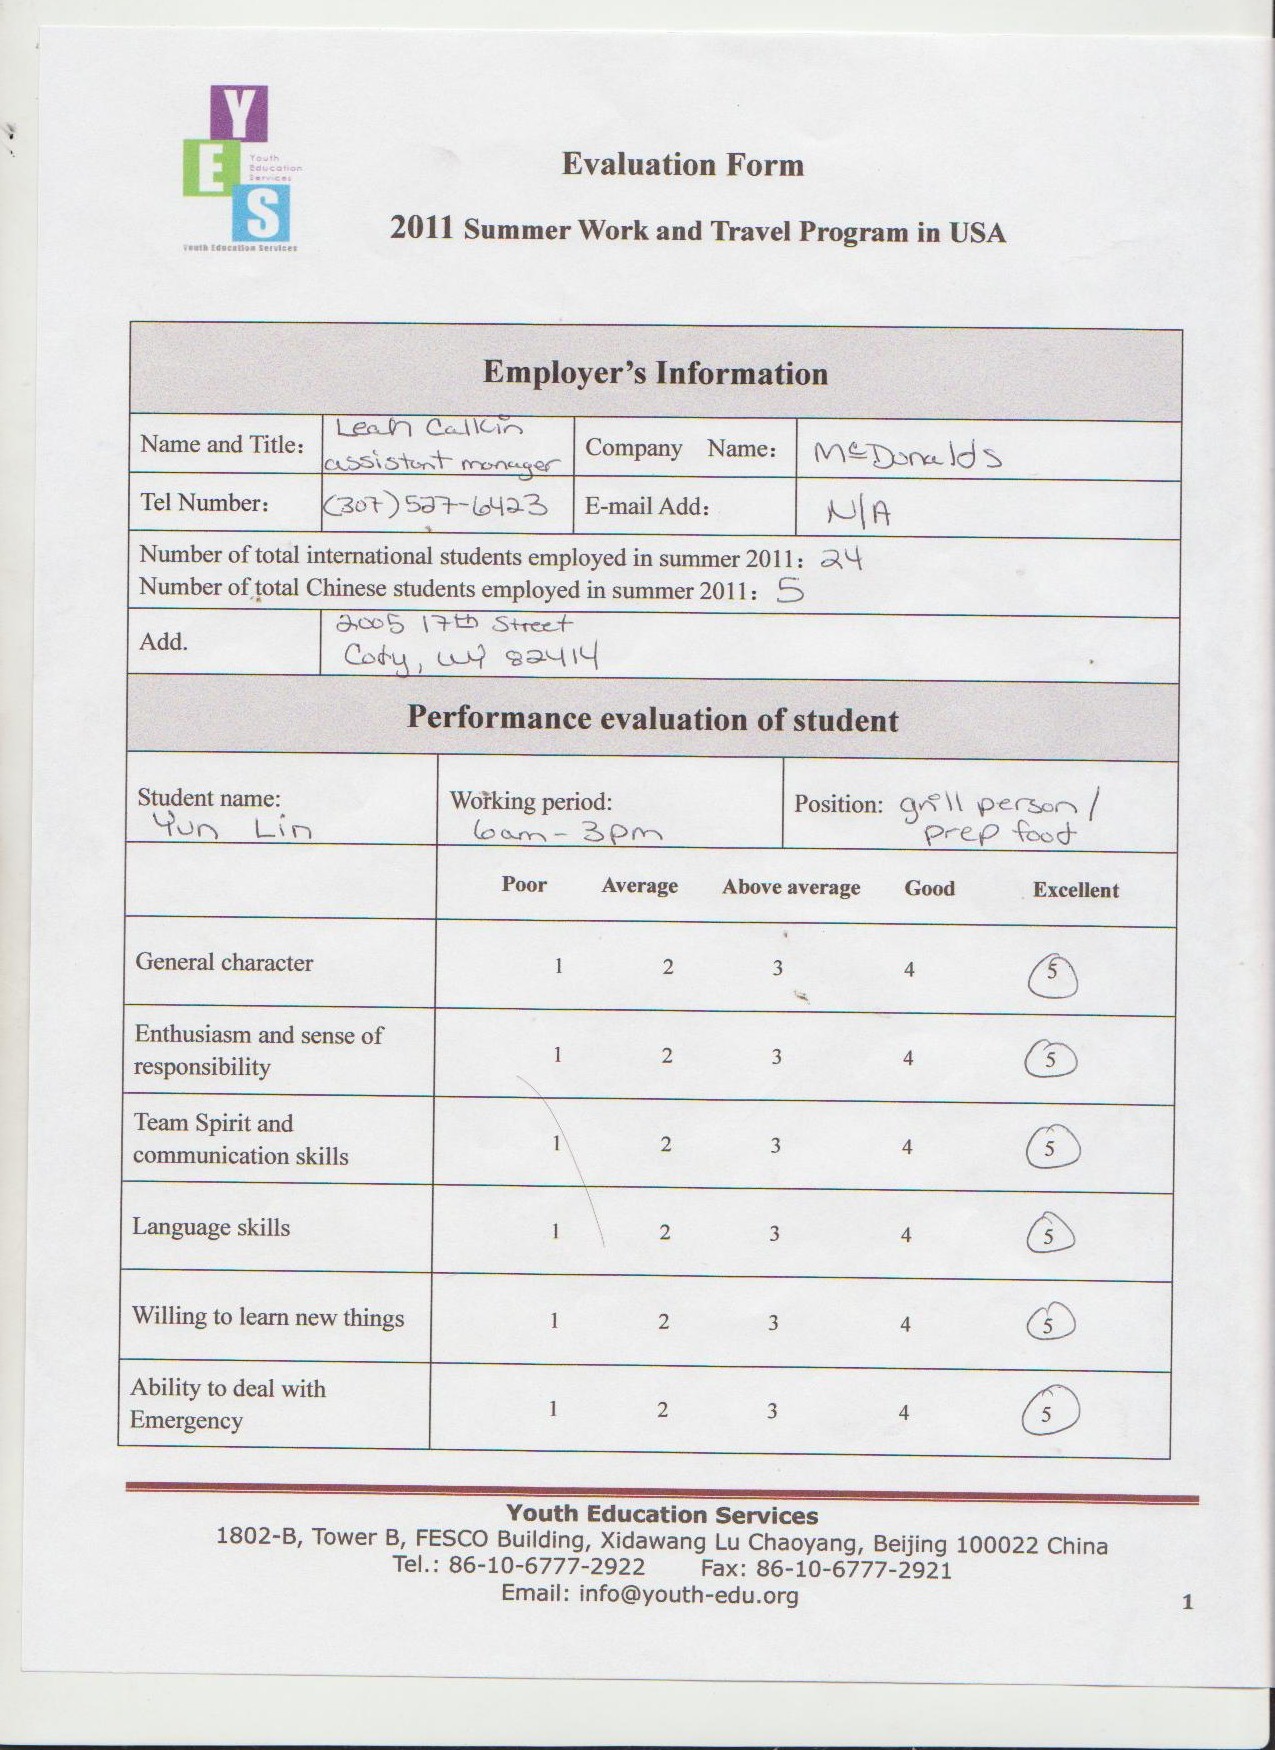 Y
E Youth
Education
Services
S
Youth Education Services
Evaluation Form
2011 Summer Work and Travel Program in USA
Employer's Information
Name and Title: Leah Calkin
assistant manager
Company Name: McDonalds
Tel Number: (307)527-6423 E-mail Add: N/A
Number of total international students employed in summer 2011: 24
Number of total Chinese students employed in summer 2011: 5
Add. 2005 17th Street
Cody, WY 82414
Performance evaluation of student
Student name:
Yun Lin
Working period:
6am - 3pm
Position: grill person /
prep food
Poor Average Above average Good Excellent
General character 1 2 3 4 5
Enthusiasm and sense of
responsibility 1 2 3 4 5
Team Spirit and
communication skills 1 2 3 4 5
Language skills 1 2 3 4 5
Willing to learn new things 1 2 3 4 5
Ability to deal with
Emergency 1 2 3 4 5
Youth Education Services
1802-B, Tower B, FESCO Building, Xidawang Lu Chaoyang, Beijing 100022 China
Tel.: 86-10-6777-2922 Fax: 86-10-6777-2921
Email: info@youth-edu.org
1